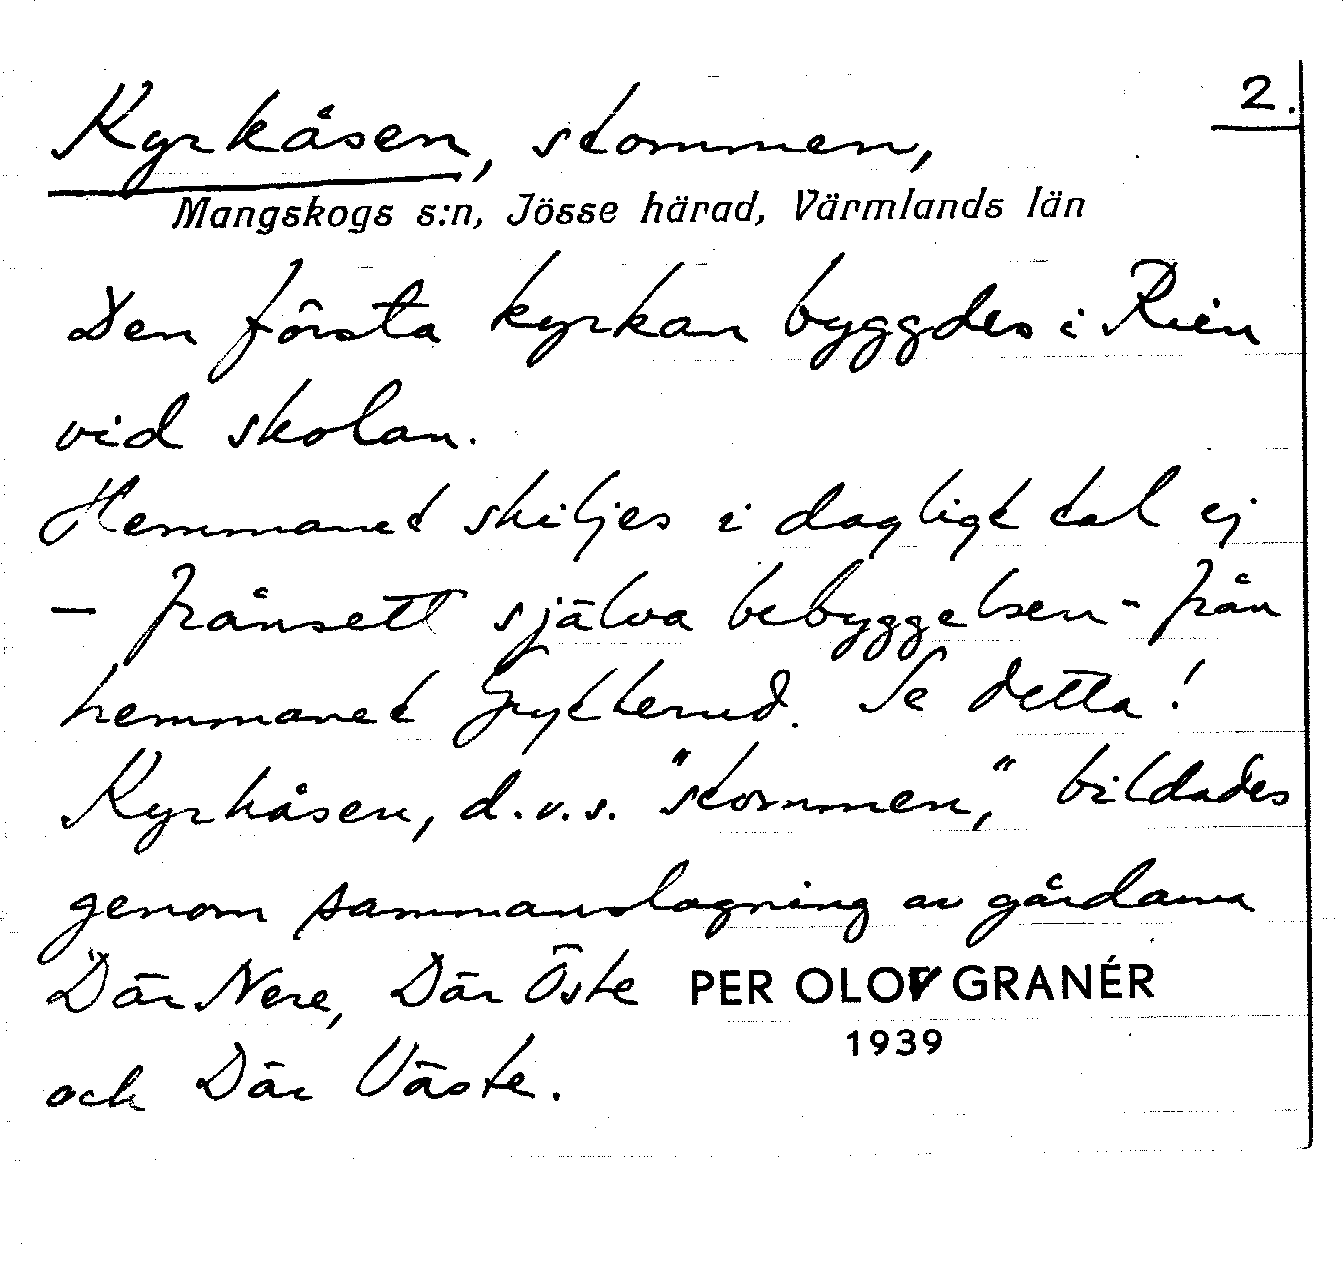 2.
Kyrkåsen, stommen,
Mangskogs s:n, Jösse härad, Värmlands län
Den första kyrkan byggdes i Rien
vid skolan.
Hemmanet skiljes i dagligt tal ej
– frånsett själva bebyggelsen – från
hemmanet Grytterud. Se detta!
Kyrkåsen, d.v.s. "stommen," bildades
genom sammanslagning av gårdarna
Där Nere, Där Öste
PER OLOF GRANÉR
1939
och Där Väste.